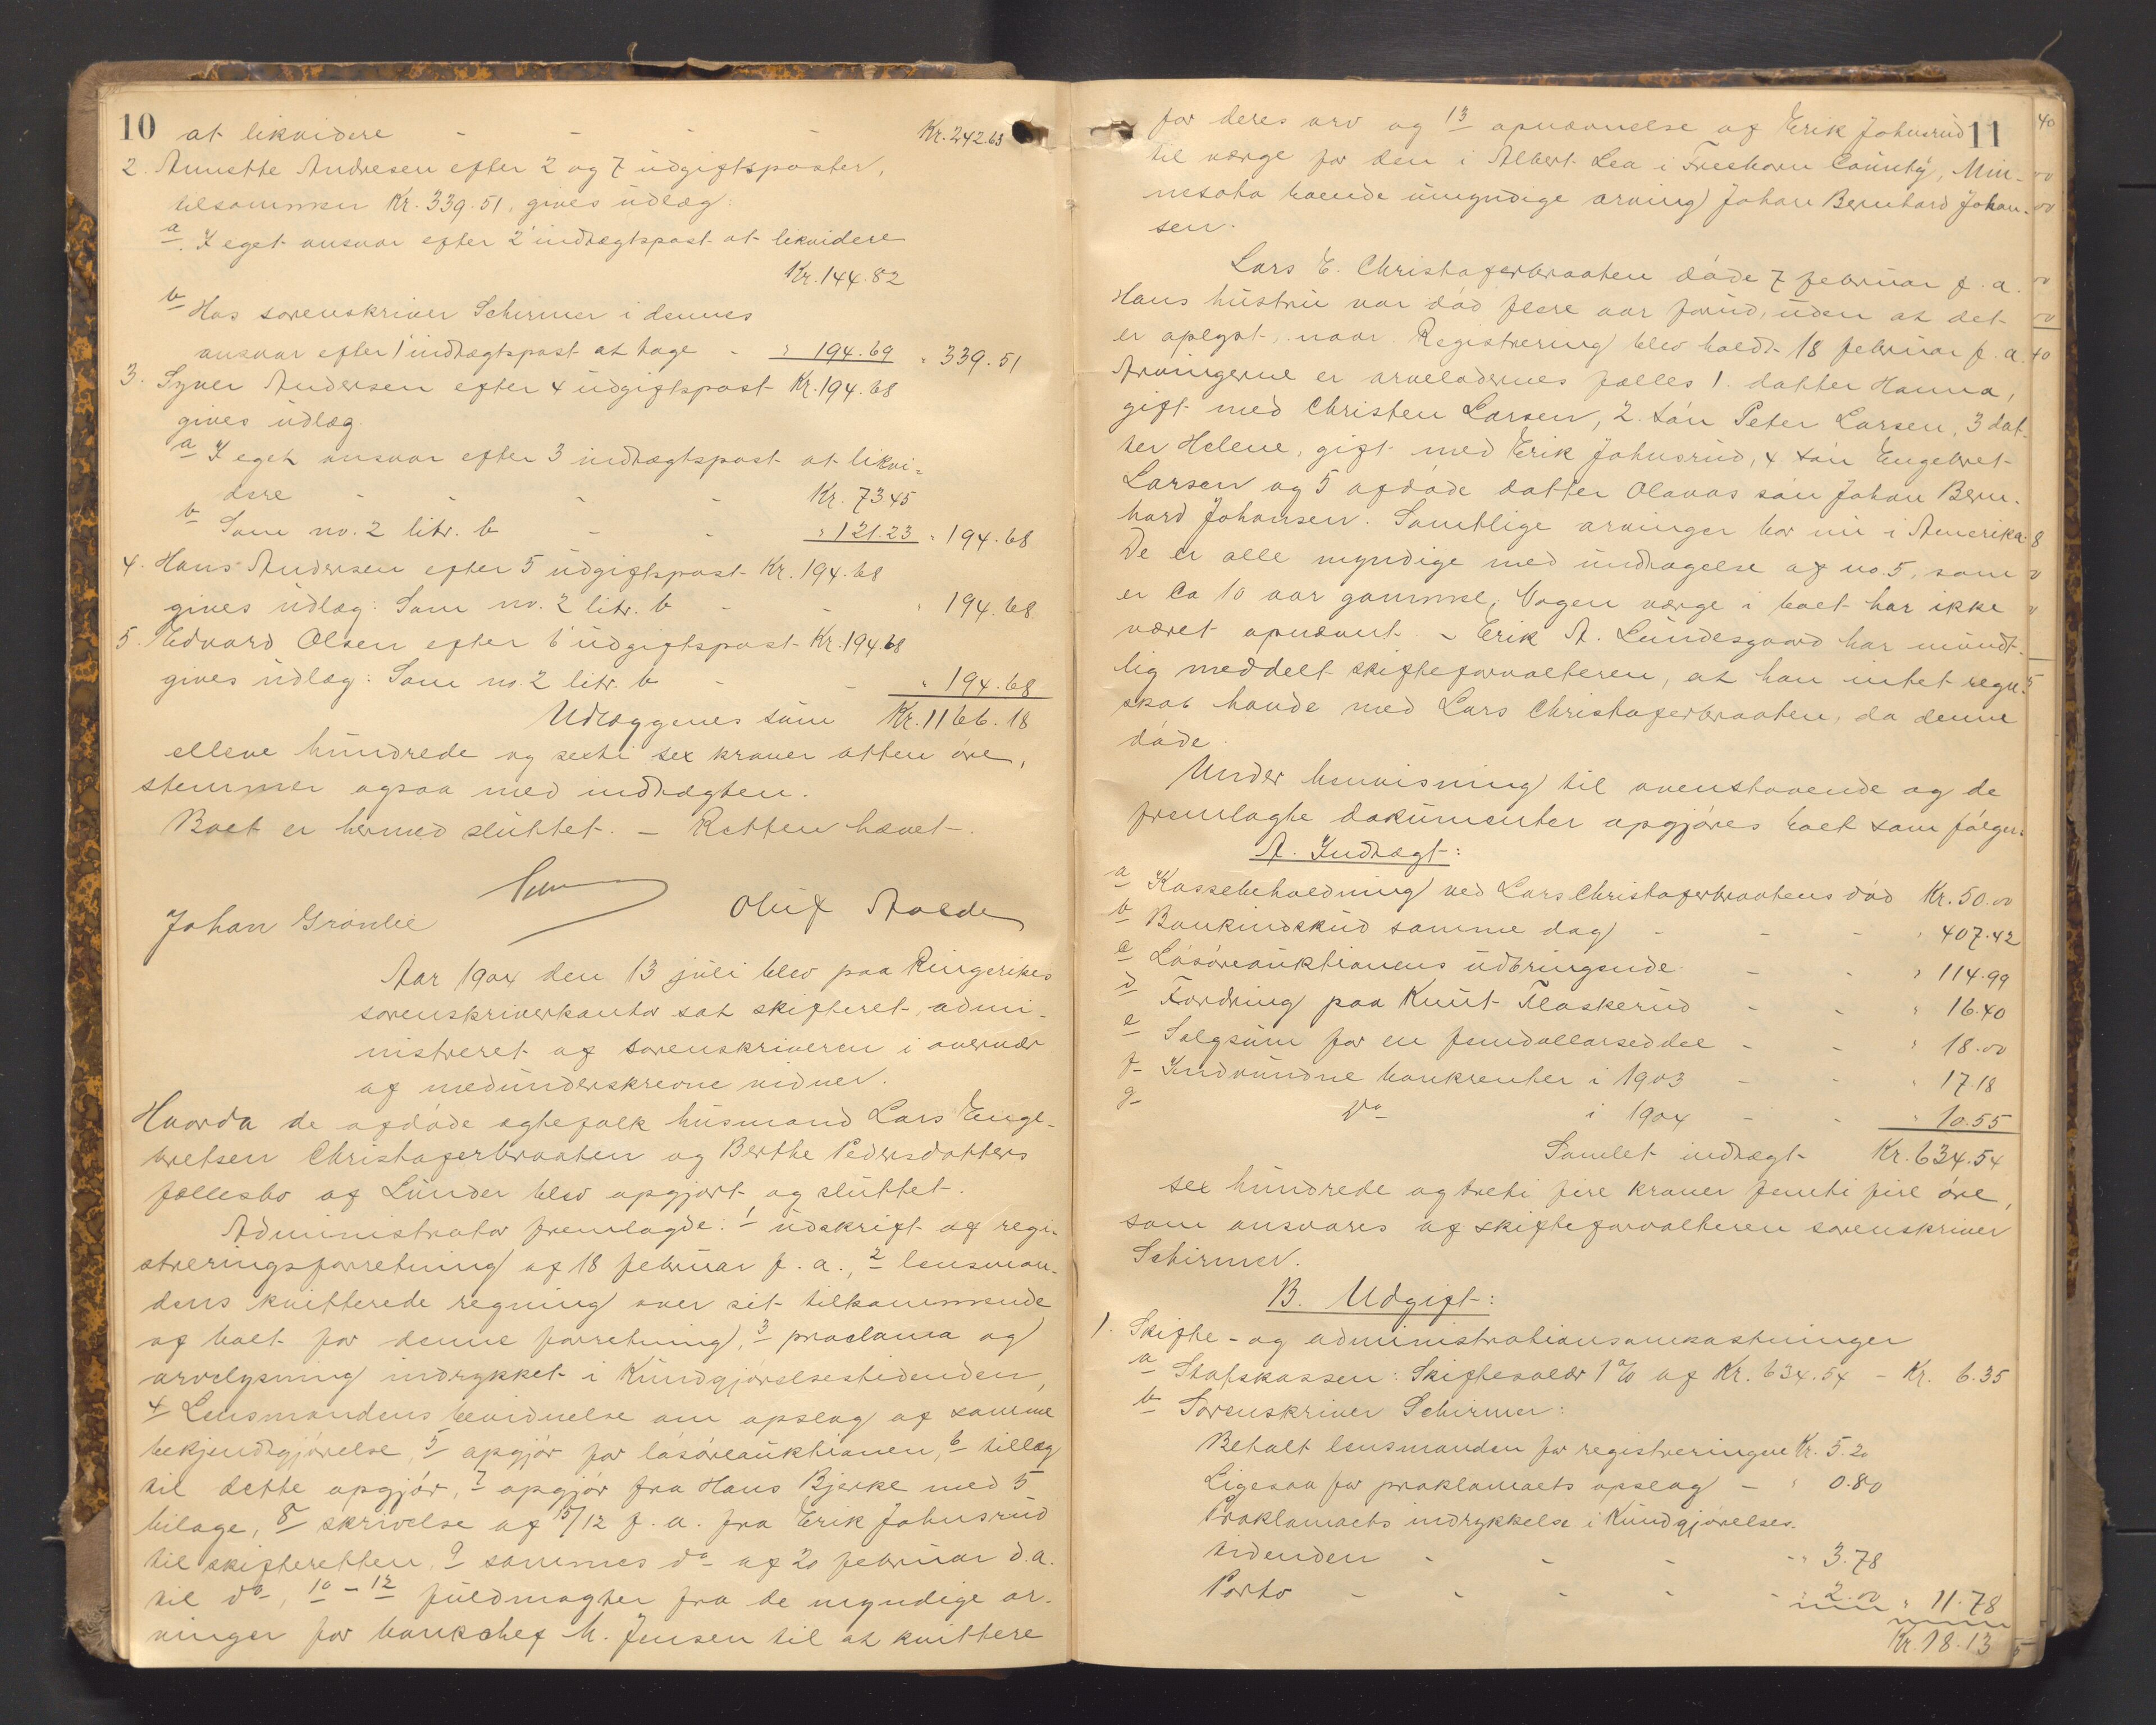 10 at likvidere - - - - Kr. 242.63
2. Annette Andresen efter 2 og 7 udgiftsposter,
tilsammen Kr. 339.51, gives udlæg:
a. I eget ansvar efter 2' indtægtspost at likvidere
Kr. 144.82
b Hos sorenskriver Schirmer i dennes
ansvar efter 1' indtægtspost at tage - " 194.69 " 339.51
3. Syver Andersen efter 4 udgiftspost Kr. 194.68
gives udlæg
a I eget ansvar efter 3 indtægtspost at likvi-
dere - - - - Kr. 73.45
b Som no. 2 litr. b - - " 121.23 " 194.68
4. Hans Andersen efter 5 udgiftspost Kr. 194.68
gives udlæg: Som no. 2 litr. b - - " 194.68
5. Edvard Olsen efter 6' udgiftspost Kr. 194.68
gives udlæg: Som no. 2 litr. b - - " 194.68
Udlæggenes sum Kr. 1166.18
elleve hundrede og sexti sex kroner atten øre,
stemmer ogsaa med indtægten.
Boet er hermed sluttet. - Retten hævet.
Johan Grønlie Oluf Aalde
Aar 1904 den 13 juli blev paa Ringerikes
sorenskriverkontor sat skifteret, admi-
nistreret af sorenskriveren i overvær
af medunderskrevne vidner.
Hvorda de afdøde egtefolk husmand Lars Enge-
bretsen Christoferbraaten og Berthe Pedersdatters
fællesbo af Lunder blev opgjort og sluttet.
Administrator fremlagde: 1 udskrift af regi-
streringsforretning af 18 februar f. a., 2 lensman-
dens kvitterede regning over sit tilkommende
af boet for denne forretning, 3 proclama og
arvelysning indrykket i Kundgjørelsestidenden,
4 Lensmandens bevidnelse om opslag af samme
bekjendtgjørelse, 5 opgjør for løsøreauktionen, 6 tillæg
til dette opgjør, 7 opgjør fra Hans Bjerke med 5
bilage, 8 skrivelse af 15/12 f. a. fra Erik Johnsrud
til skifteretten, 9 sammes do af 20 februar d. a.
til do, 10 - 12 fuldmagter fra de myndige ar-
vinger for bankchef M. Jensen til at kvittere
11
for deres arv og 13 opnævnelse af Erik Johnsrud
til værge for den i Albert Lea i Freeborn County, Min-
nesota boende umyndige arving Johan Bernhard Johan-
sen.
Lars E. Christoferbraaten døde 7 februar f. a.
Hans hustru var død flere aar forud, uden at det
er oplyst, naar. Registrering blev holdt 18 februar f. a.
Arvingerne er arveladernes fælles 1. datter Hanna,
gift med Christen Larsen, 2. søn Peter Larsen, 3 dat-
ter Helene, gift med Erik Johnsrud, 4 søn Engebret
Larsen og 5 afdøde datter Olavas søn Johan Bern-
hard Johansen. Samtlige arvinger bor nu i Amerika.
De er alle myndige med undtagelse af no. 5, som
er ca 10 aar gammel; Nogen værge i boet har ikke
været opnævnt. - Erik A. Lundesgaard har mundt-
lig meddelt skifteforvalteren, at han intet regn-
skab havde med Lars Christoferbraaten, da denne
døde.
Under henvisning til ovenstaaende og de
fremlagte dokumenter opgjøres boet som følger:
A. Indtægt:
a Kassebeholdning ved Lars Christoferbraatens død Kr. 50.00
b Bankindskud samme dag - - - " 407.42
c Løsøreauktionens udbringende - - " 114.99
d Fordring paa Knut Flaskerud - - " 16.40
e Salgsum for en femdollarseddel - - " 18.00
f Indvundne bankrenter i 1903 - - " 17.18
g do i 1904 - - " 10.55
Samlet indtægt Kr. 634.54
sex hundrede og treti fire kroner femti fire øre,
som ansvares af skifteforvalteren sorenskriver
Schirmer.
B. Udgift:
1. Skifte- og administrationsomkostninger
a Statskassen: Skiftesalær 1 % af Kr. 634.54 - Kr. 6.35
b Sorenskriver Schirmer:
Betalt lensmanden for registreringen Kr. 5.20
Ligesaa for proklamaets opslag - " 0.80
Proklamaets indrykkelse i Kundgjørelses-
tidenden - - - - " 3.78
Porto - - - - - " 2.00 " 11.78
Kr. 18.13